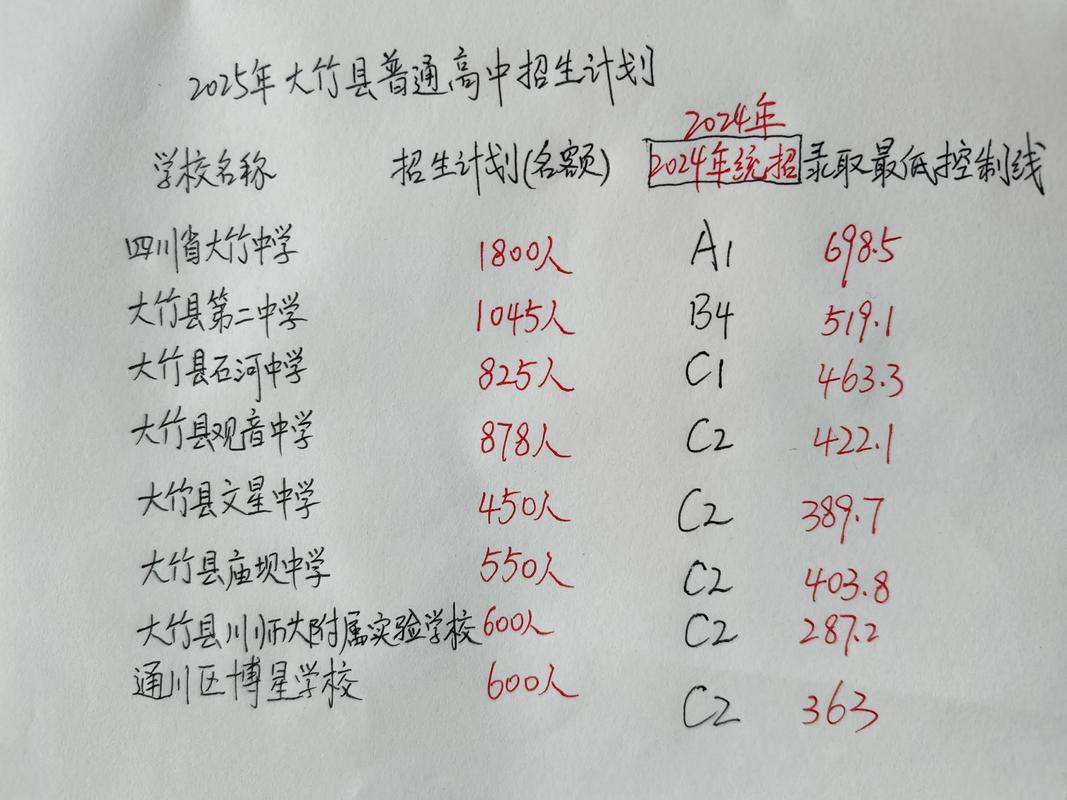 2025年大竹县普通高中招生计划
2024年
学校名称 招生计划(名额) 2024年统招 录取最低控制线
四川省大竹中学 1800人 A1 698.5
大竹县第二中学 1045人 B4 519.1
大竹县石河中学 825人 C1 463.3
大竹县观音中学 878人 C2 422.1
大竹县文星中学 450人 C2 389.7
大竹县庙坝中学 550人 C2 403.8
大竹县川师大附属实验学校 600人 C2 287.2
通川区博星学校 600人 C2 363